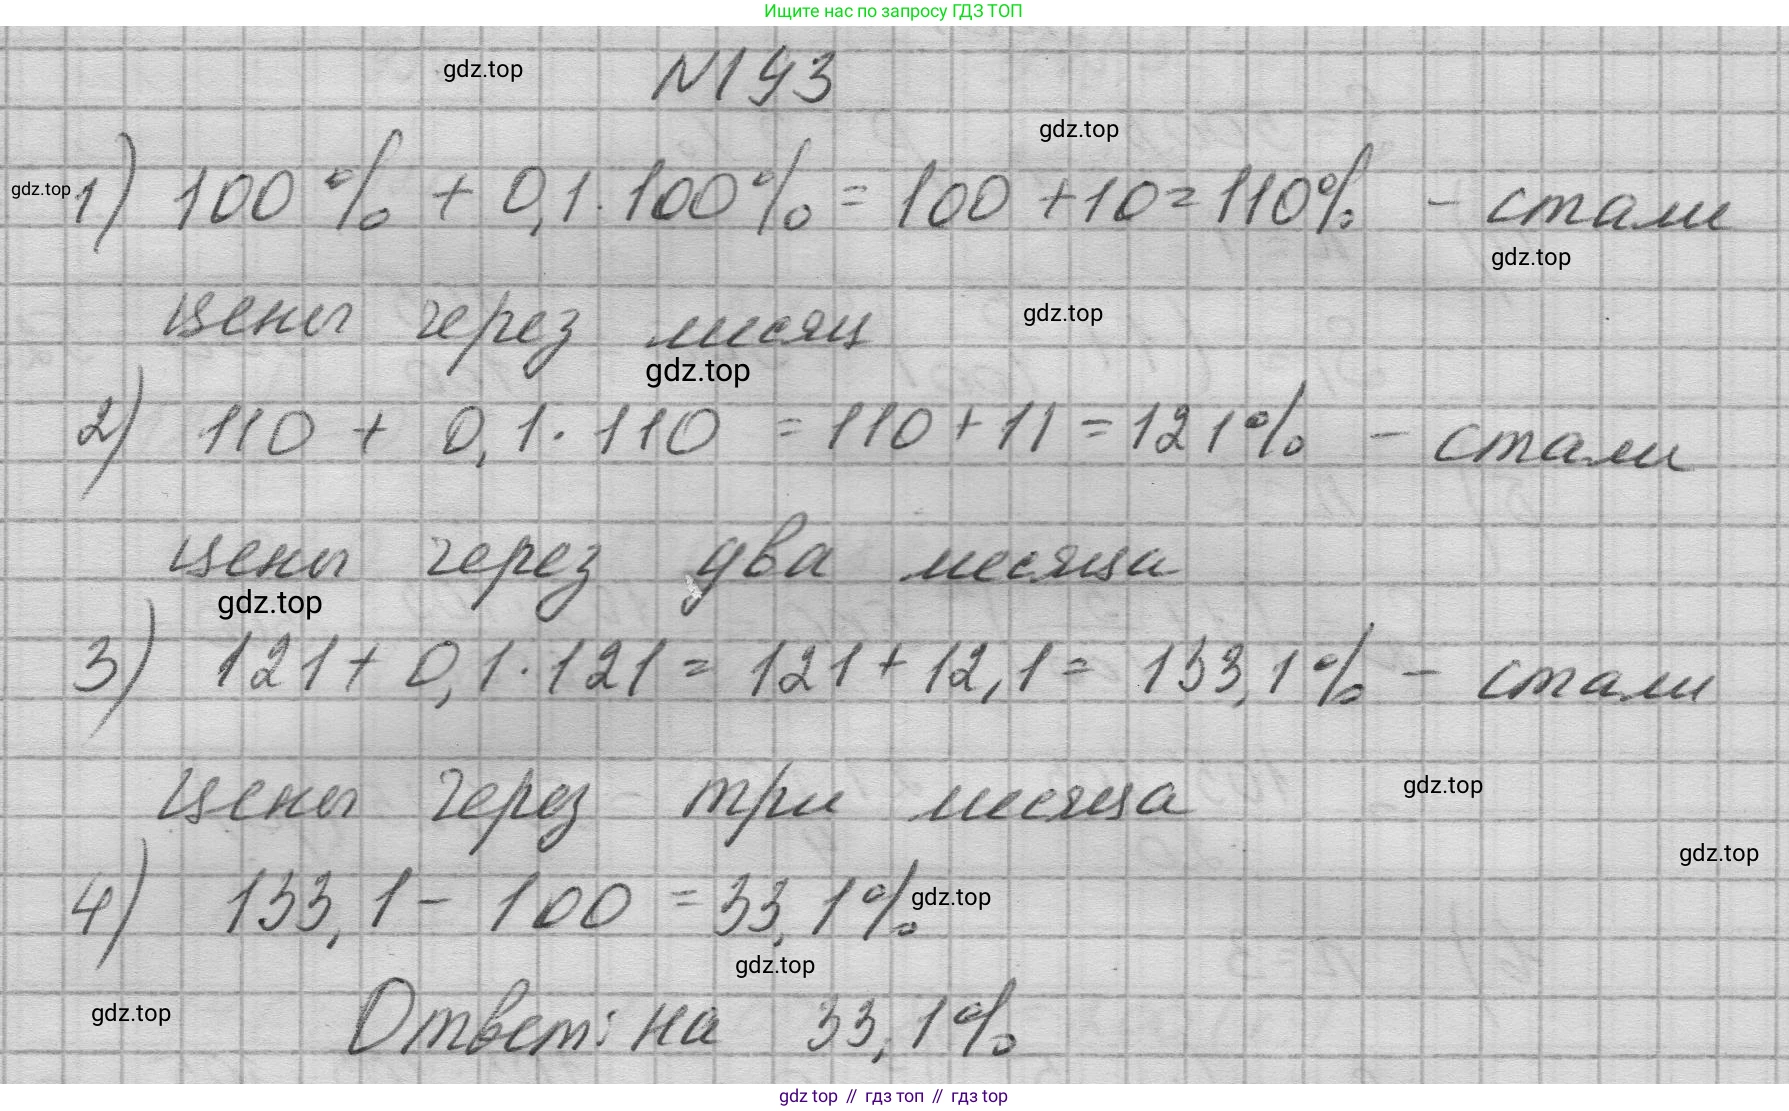 Ищите нас по запросу ГДЗ ТОП
gdz.top
N193
gdz.top
gdz.top
1) 100% + 0,1·100% = 100 + 10 = 110% - стали
gdz.top
цены через месяц
gdz.top
gdz.top
2) 110 + 0,1·110 = 110 + 11 = 121% - стали
цены через два месяца
gdz.top
3) 121 + 0,1·121 = 121 + 12,1 = 133,1% - стали
цены через три месяца
gdz.top
gdz.top
4) 133,1 - 100 = 33,1%
gdz.top
gdz.top
gdz.top
Ответ: на 33,1%
gdz top // гдз топ // гдз top